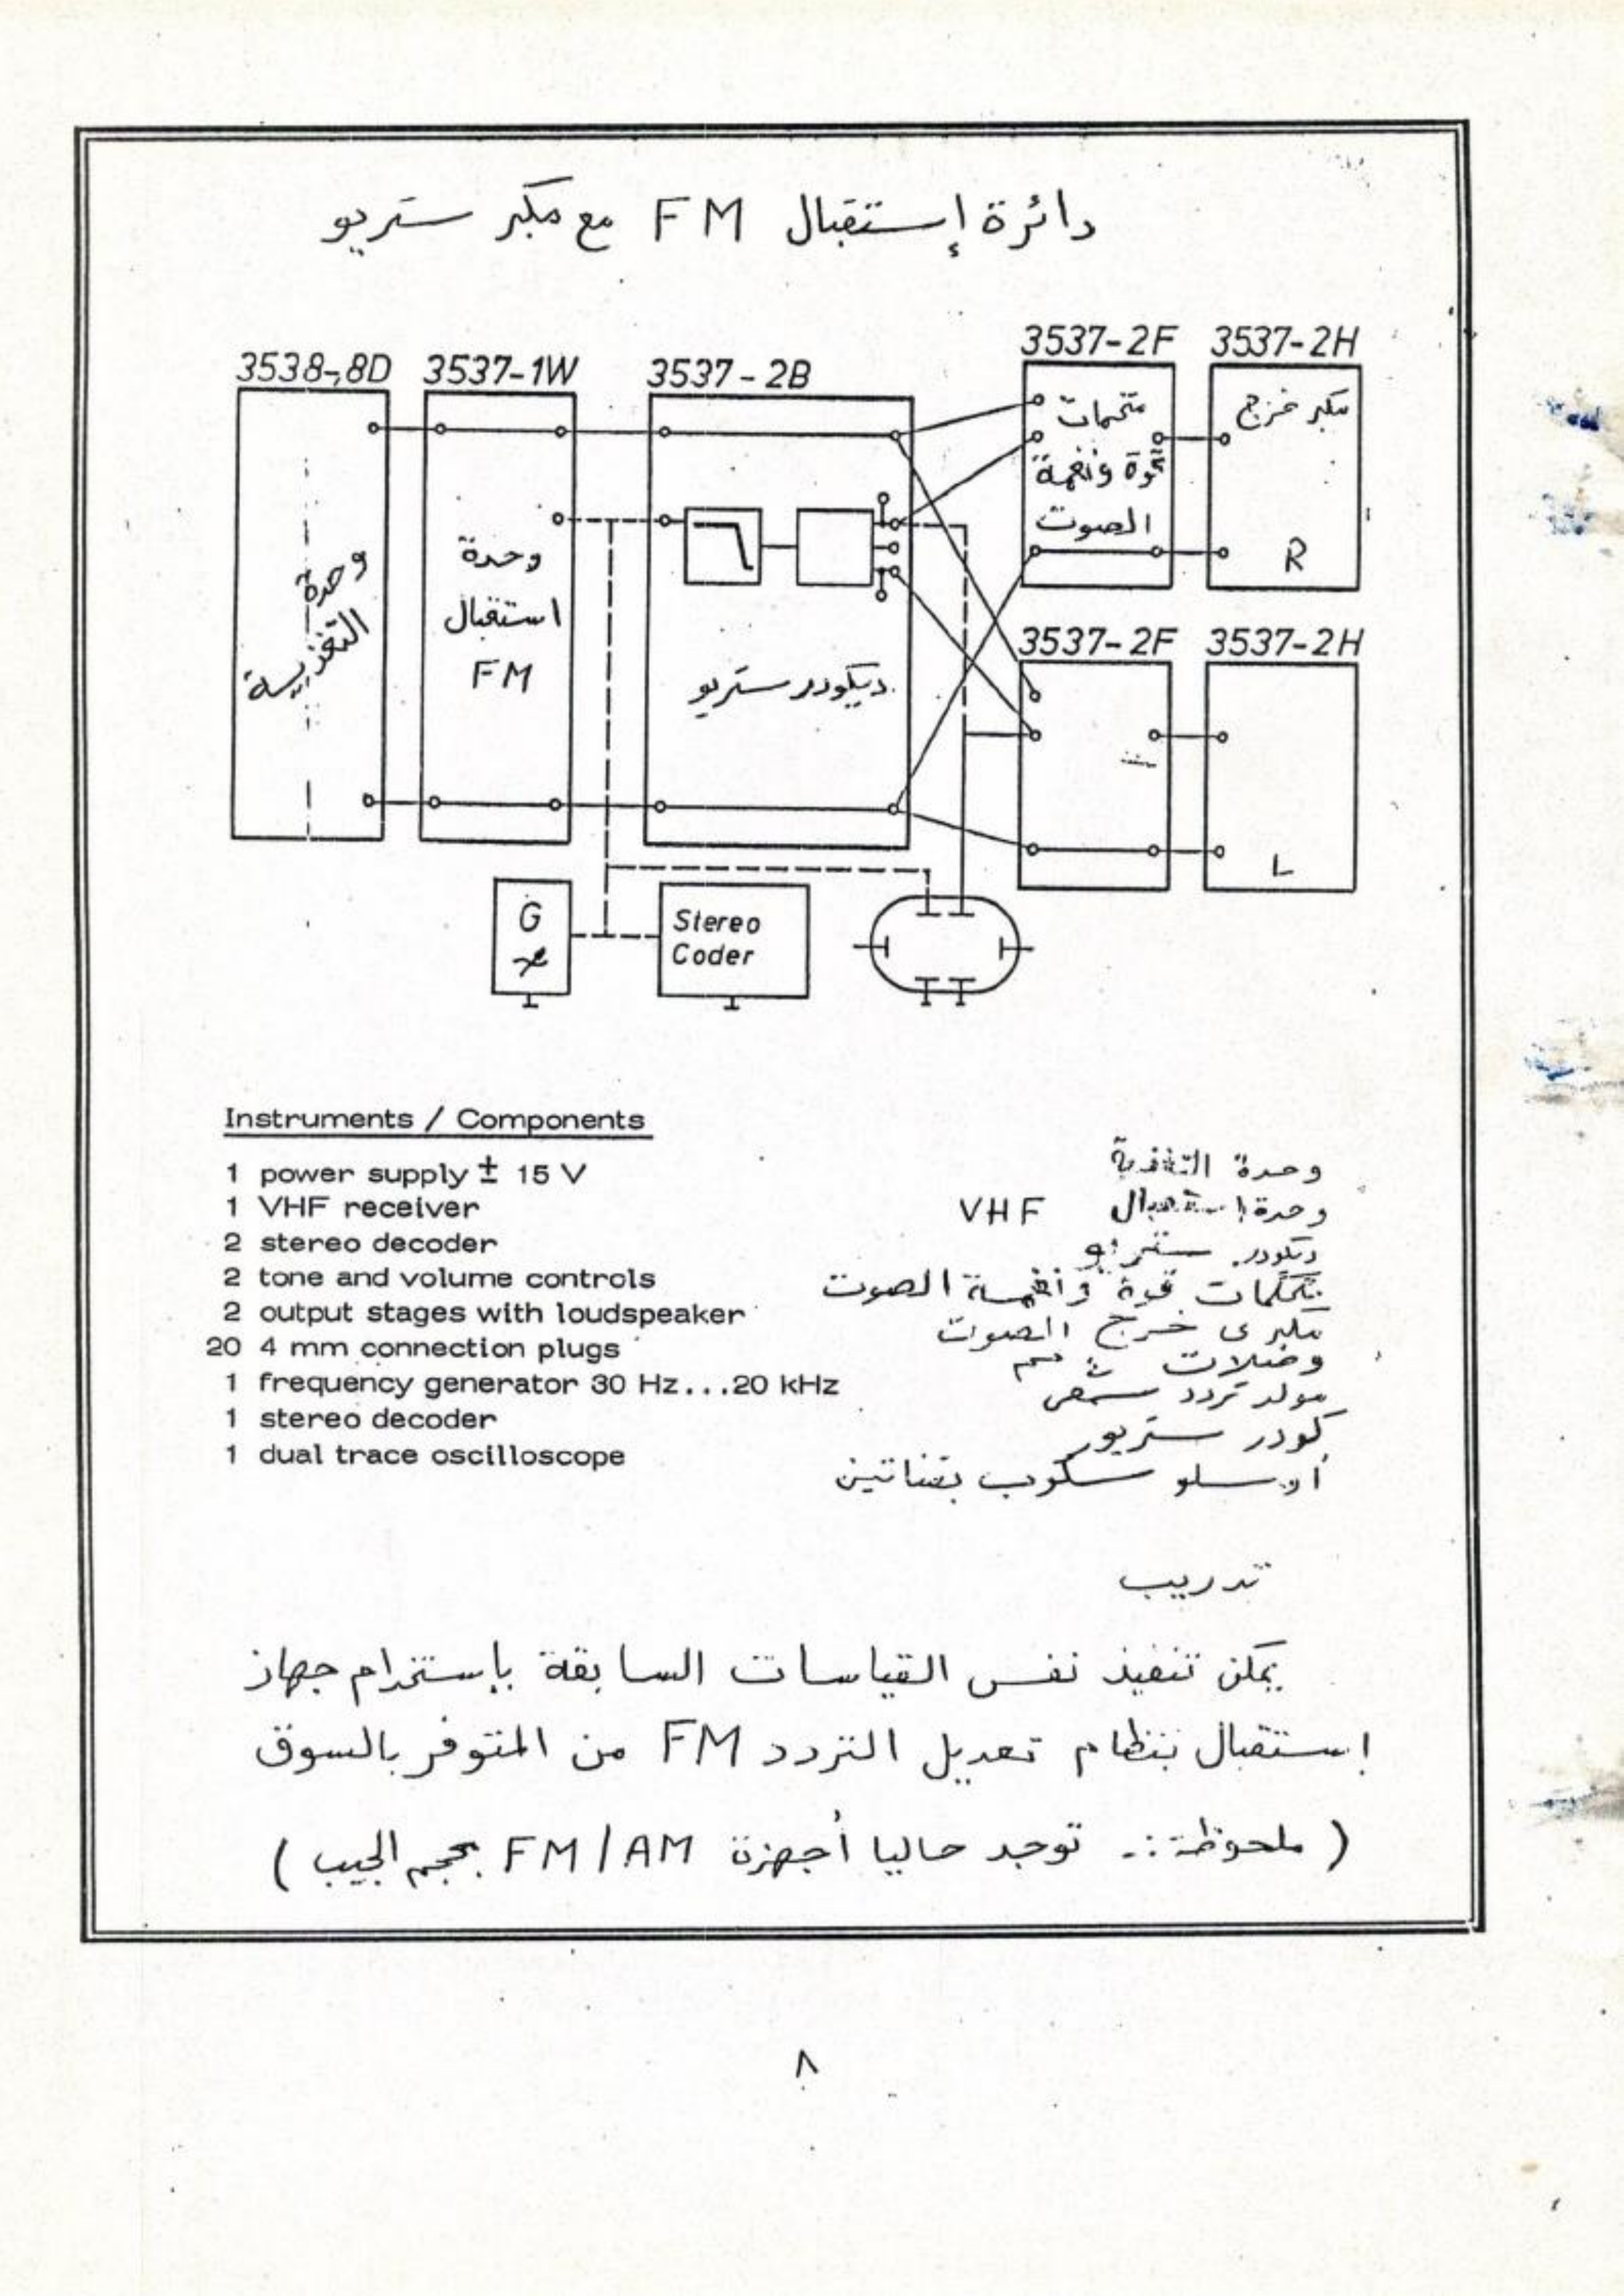 دائرة إستقبال FM مع مكبر ستريو
3538-8D
3537-1W
3537-2B
3537-2F
3537-2H
وحدة
التغذيية
وحدة
استقبال
FM
ديكودر ستريو
قوة ونغمة
الصوت
مكبر خرج
R
3537-2F
3537-2H
L
G
Stereo
Coder
Instruments / Components
1 power supply ± 15 V
1 VHF receiver
2 stereo decoder
2 tone and volume controls
2 output stages with loudspeaker
20 4 mm connection plugs
1 frequency generator 30 Hz...20 kHz
1 stereo decoder
1 dual trace oscilloscope
وحدة التغذية
وحدة استقبال VHF
ديكودر ستريو
قوة ونغمة الصوت
مكبرى خرج الصوت
وصلات
مولد تردد سمعى
كودر ستريو
سكوب بقناتين
تدريب
يمكن تنفيذ نفس القياسات السابقة بإستخدام جهاز
إستقبال بنظام تعديل التردد FM من المتوفر بالسوق
( ملحوظة :- توجد حاليا أجهزة FM/AM بحجم الجيب )
٨